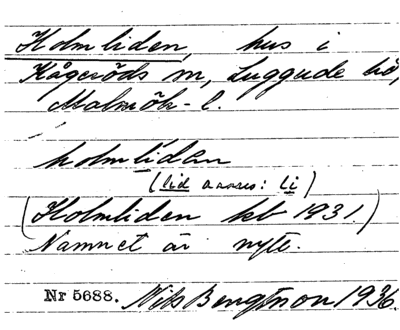 Holmliden, hus i
Kågeröds sn, Luggude hd,
Malmöh. l.
holmlidan
(lid annars: li)
(Holmliden kb 1931.)
Namnet är nytt.
Nr 5688. Nils Bengtsson 1936.